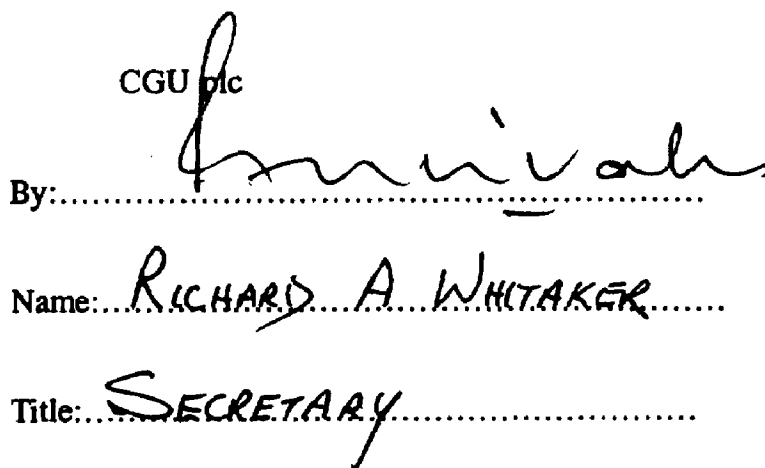 CGU plc
By:
Name: RICHARD A WHITAKER
Title: SECRETARY